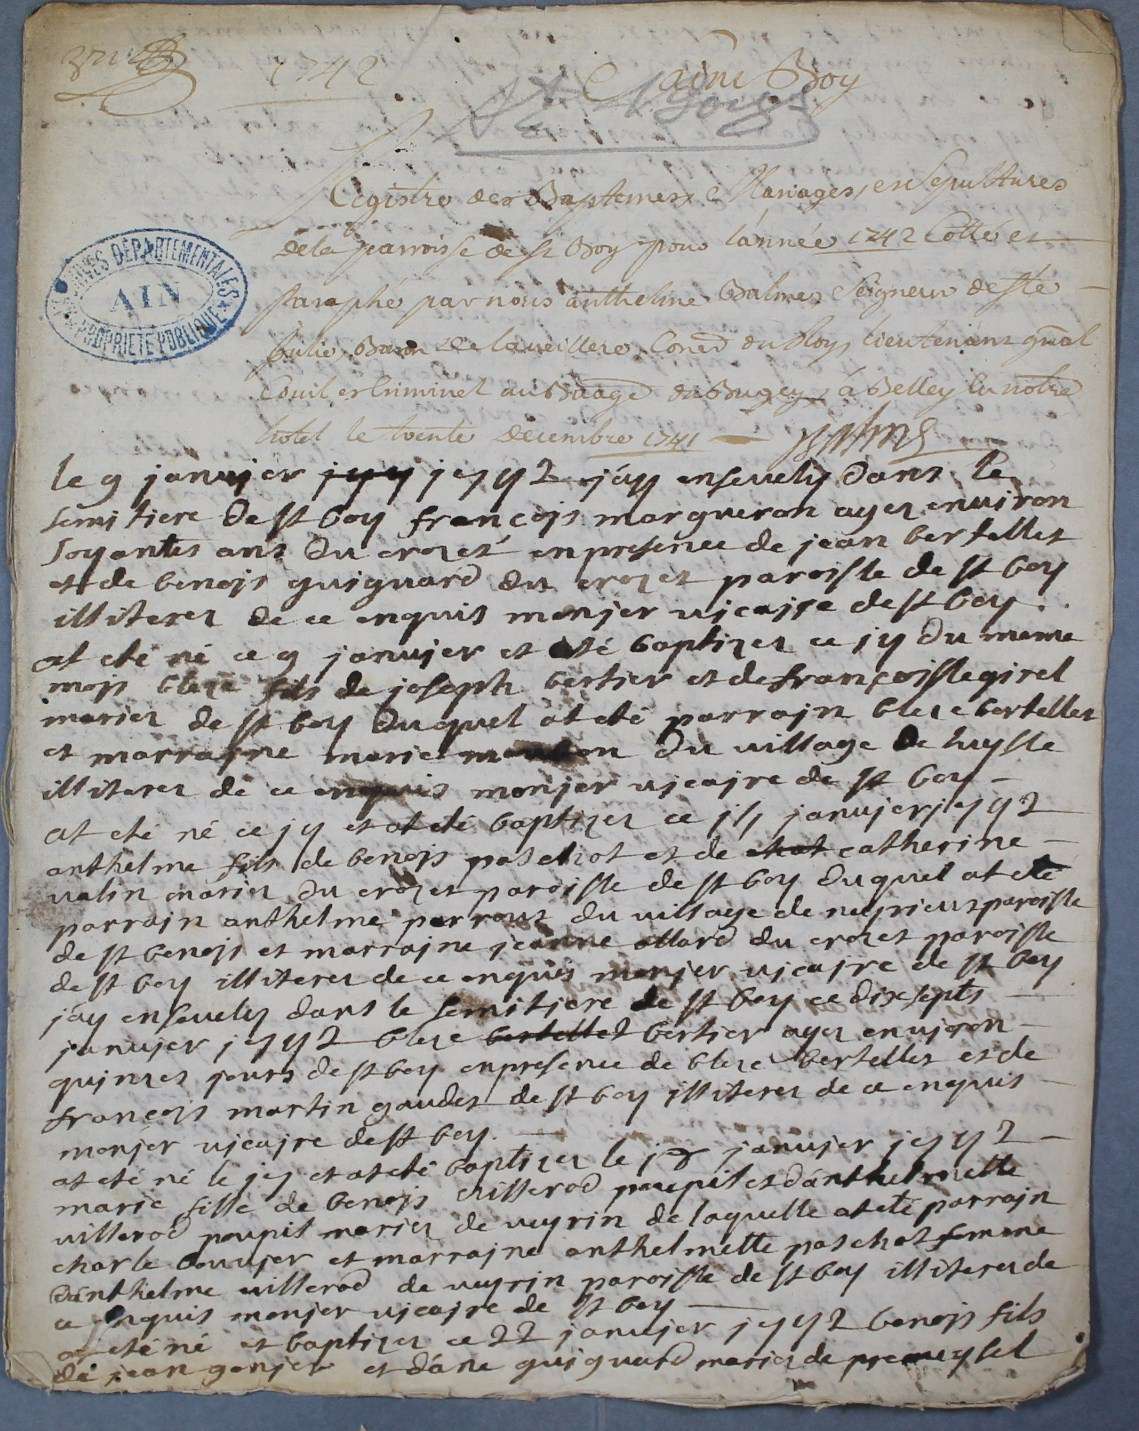 1742
St Boys
Registre des Baptemes, Mariages, et Sepultures
de la parroisse de St Boy pour l'année 1742 Cotté et
Paraphé par nous anthelme Balme Seigneur de Ste
Julie, Baron de Lieutenant gnal
Civil et Criminel au Baage du Bugey à Belley En notre
hotel le trente decembre 1741
ARCHIVES DÉPARTEMENTALES
AIN
PROPRIÉTÉ PUBLIQUE
le 9 janvjer j7yy j7y2 j'áy ensevely dans le
semitiere de st boy françojs margueron agez environ
soyantes ans du crozet en presence de jean bertellet
et de benojs guiguard du crozet paroisse de st boy
illiterez de ce enquis monjer vjcajre de st boy.
at eté né ce 9 janvjer et até baptizer ce jy du meme
mojs bleze fils de joseph bertier et de françoisse girel
mariez de st boy duquel at eté parrajn bleze bertellet
et marrajne marie du village de luysse
illiterez de ce enquis monjer vjcajre de st boy
at eté né ce jy et at eté baptizer ce janvjer j7y2
anthelme fils de benojs paschot et de chat catherine
valin mariez du crozet paroisse de st boy duquel at eté
parrajn anthelme perrout du village de neyrieux paroisse
de st benojs et marrajne jeanne allard du crozet paroisse
de st boy illiterez de ce enquis monjer vjcajre de st boy
j'áy ensevely dans le semitiere de st boy ce dixsepts
janvjer j7y2 bleze bertellet bertier agez envjron
quinzes jours de st boy en presence de bleze bertellet et de
françojs martin gaudet de st boy illiterez de ce enquis
monjer vjcajre de st boy.
at eté né le j7 et at eté baptizer le j8 janvjer j7y2
marie fille de benojs villerod poupit et d'anthelmette
villerod poupit mariez de veyrin de laquelle at eté parrajn
charle bouvjer et marrajne anthelmette paschot femme
d'anthelme villerod de veyrin paroisse de st boy illiterez de
ce enquis monjer vjcajre de st boy
at eté né et baptizer ce 22 janvjer j7y2 benojs fils
de jean gonjer et d'ane guiguard mariez de premeysel